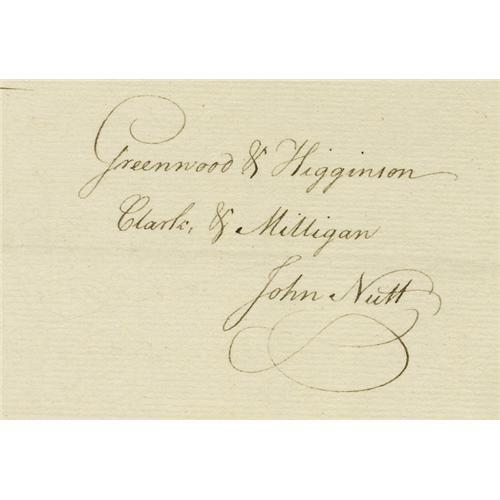 Greenwood & Higginson
Clark, & Milligan
John Nutt